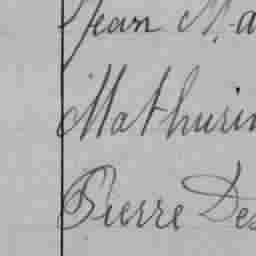 Jean Ma
Mathurin
Pierre Des